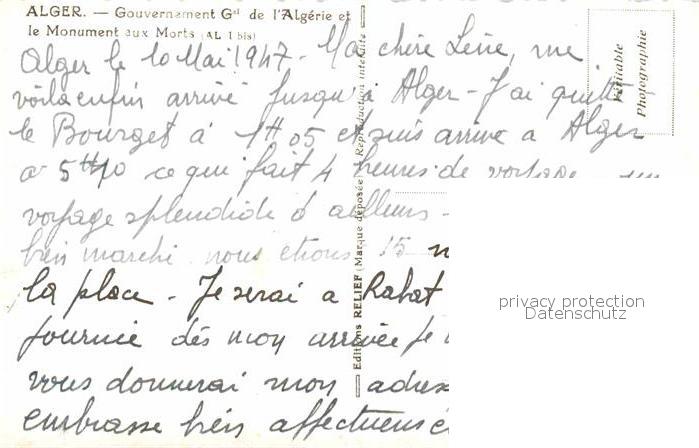 ALGER. — Gouvernement Gal de l'Algérie et
le Monument aux Morts (AL 1 bis)
Véritable
Photographie
Editions RELIEF (Marque déposée) Reproduction interdite
Alger le 10 Mai 1947 - Ma chère me
voila enfin arrivé jusqu'à Alger - J'ai quitté
le Bourget à 1H05 et suis arrivé a Alger
a 5H10 ce qui fait 4 heures de voyage un
voyage splendide d'ailleurs -
bien marché nous etions 15
la place - Je serai a Rabat
journée dés mon arrivée je
vous donnerai mon adres
embrasse bien affectueusé
privacy protection
Datenschutz